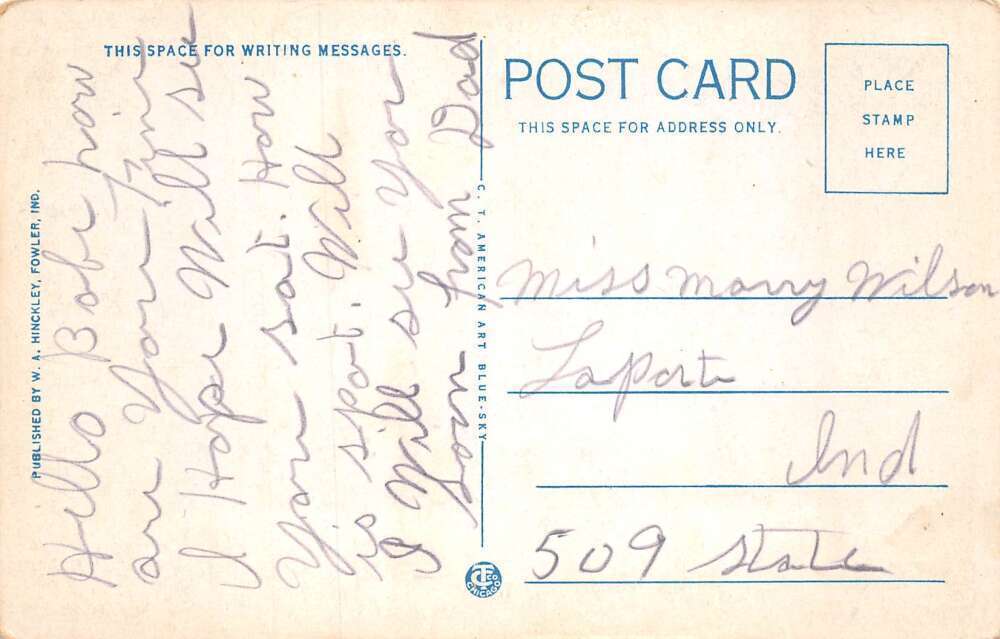 THIS SPACE FOR WRITING MESSAGES.
Hello Bobe how
are You Fine
I Hope Will see
You sat. How
is spot. Will
I Will see You
Soon From Dad
PUBLISHED BY W. A. HINCKLEY, FOWLER, IND.
C. T. AMERICAN ART BLUE-SKY
POST CARD
THIS SPACE FOR ADDRESS ONLY.
PLACE
STAMP
HERE
Miss Marry Wilson
LaPorte
Ind
509 State
CT CO
CHICAGO